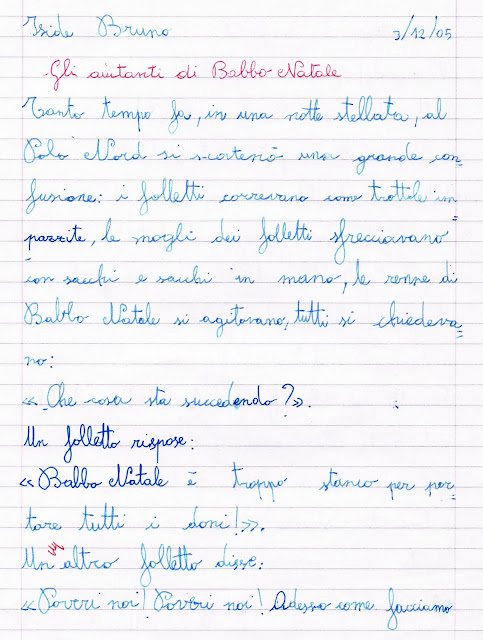 Iside Bruno 3/12/05
Gli aiutanti di Babbo Natale
Tanto tempo fa, in una notte stellata, al
Polo Nord si scatenò una grande con=
fusione: i folletti correvano come trottole im=
pazzite, le mogli dei folletti sfrecciavano
con sacchi e sacchi in mano, le renne di
Babbo Natale si agitavano, tutti si chiedeva=
no:
«Che cosa sta succedendo?».
Un folletto rispose:
«Babbo Natale è troppo stanco per por=
tare tutti i doni!».
Un altro folletto disse:
«Poveri noi! Poveri noi! Adesso come facciamo